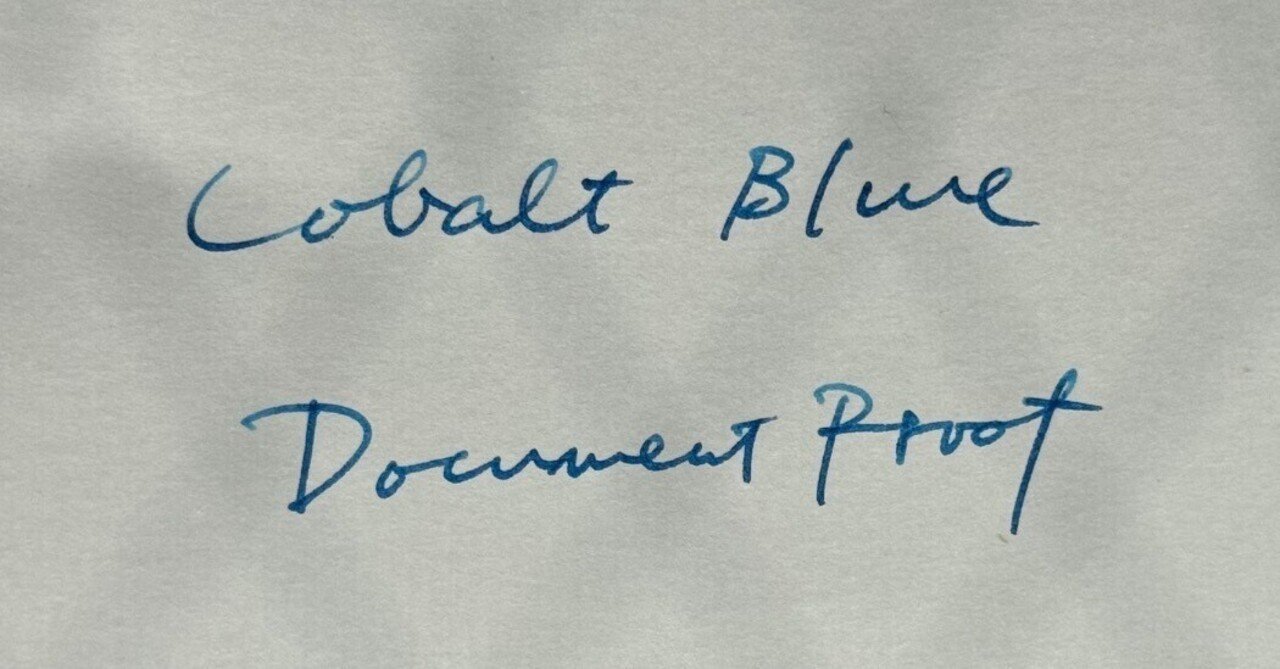 Cobalt Blue
Document Proof